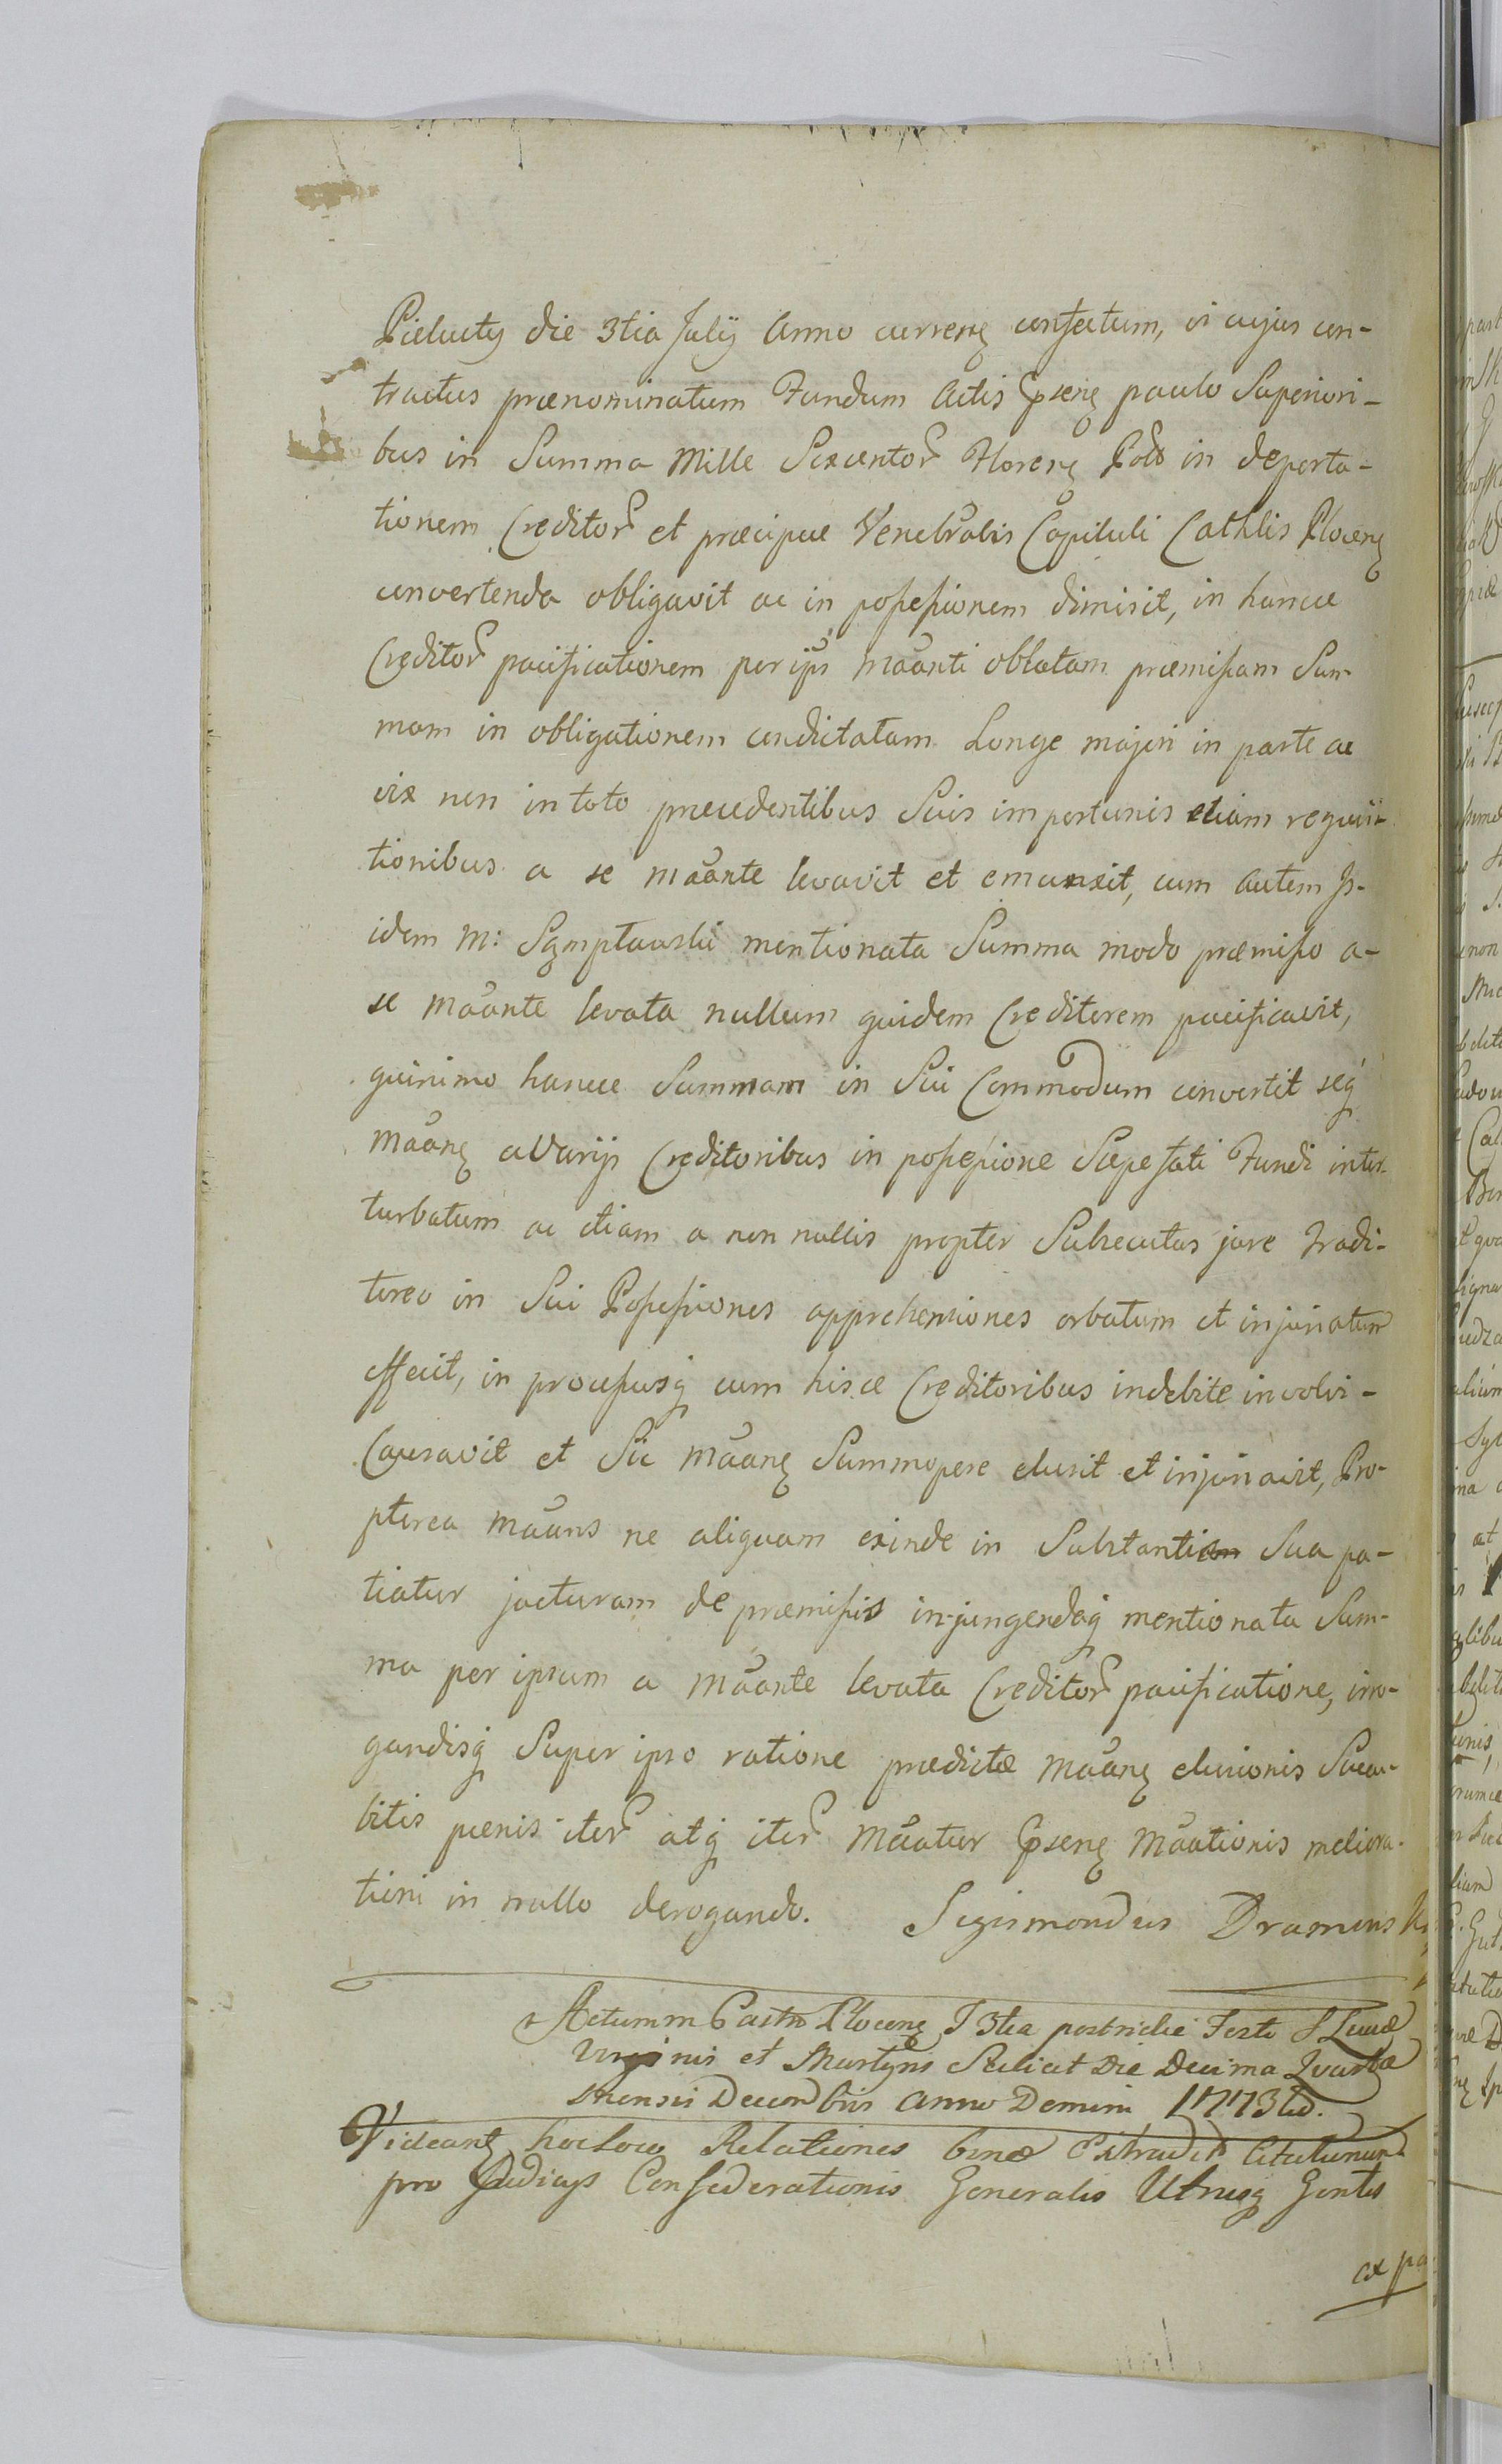 die 3tia Julij Anno currenȩ confectum, vi cujus con-
tractus prænominatum Fundum Actis pꝛsenȩ paulo Superiori-
bus in Summa Mille Sexcentoꝛ Florenȩ Pols in deporta-
tionem Creditoꝛ et præcipue Venerabilis Capituli Cathlis Plocenȩ
convertenda obligavit ac in possessionem dimisit, in hance
Creditoꝛ pacificationem per ips māanti oblatam præmissam Sum
mam in obligationem condictatam Longe majori in parte ac
vix non in toto præcedentibus Suis importunis etiam requisi-
tionibus a se māante levavit et emunxit, cum autem Is-
idem M: mentionata Summa modo præmisso a-
se māante levata nullum quidem Creditorem pacificavit,
quinimo hance Summam in Sui Commodum convertit seq́
māanȩ a Varijs Creditoribus in possessione Sæpefati Fundi inter-
turbatum ac etiam a non nullis propter Subsecutas jure tradi-
toreo in Sui Possessiones apprehensiones orbatum et injuriatum
effecit, in processusq́ cum hisce Creditoribus indebite involvi-
Causavit et Sic māanȩ Summopere elusit et injuriavit, Pro-
pterea māans ne aliquam exinde in Substantia Sua pa-
tiatur jacturam de præmissis injungendaq́ mentionata Sum-
ma per ipsum a māante levata Creditoꝛ pacificatione, irro-
gandisq́ Super ipso ratione prædictæ māanȩ elusionis Succu-
bitis pœnis iteꝛ atq́ iteꝛ māatur pꝛsenȩ māationis meliora-
tioni in nullo derogando. Sigismondus
Actum in Castro Plocenȩ F 3tia postridie Festi S Luciæ
Virginis et Martyris Scilicet Die Decima Quarta
Mensis Decembris Anno Domini 1773tio.
Videantȩ hocloco Relationes binæ Extradit Citationum
pro Judicijs Confœderationis Generalis Utriusq́ Gentis
ex pa